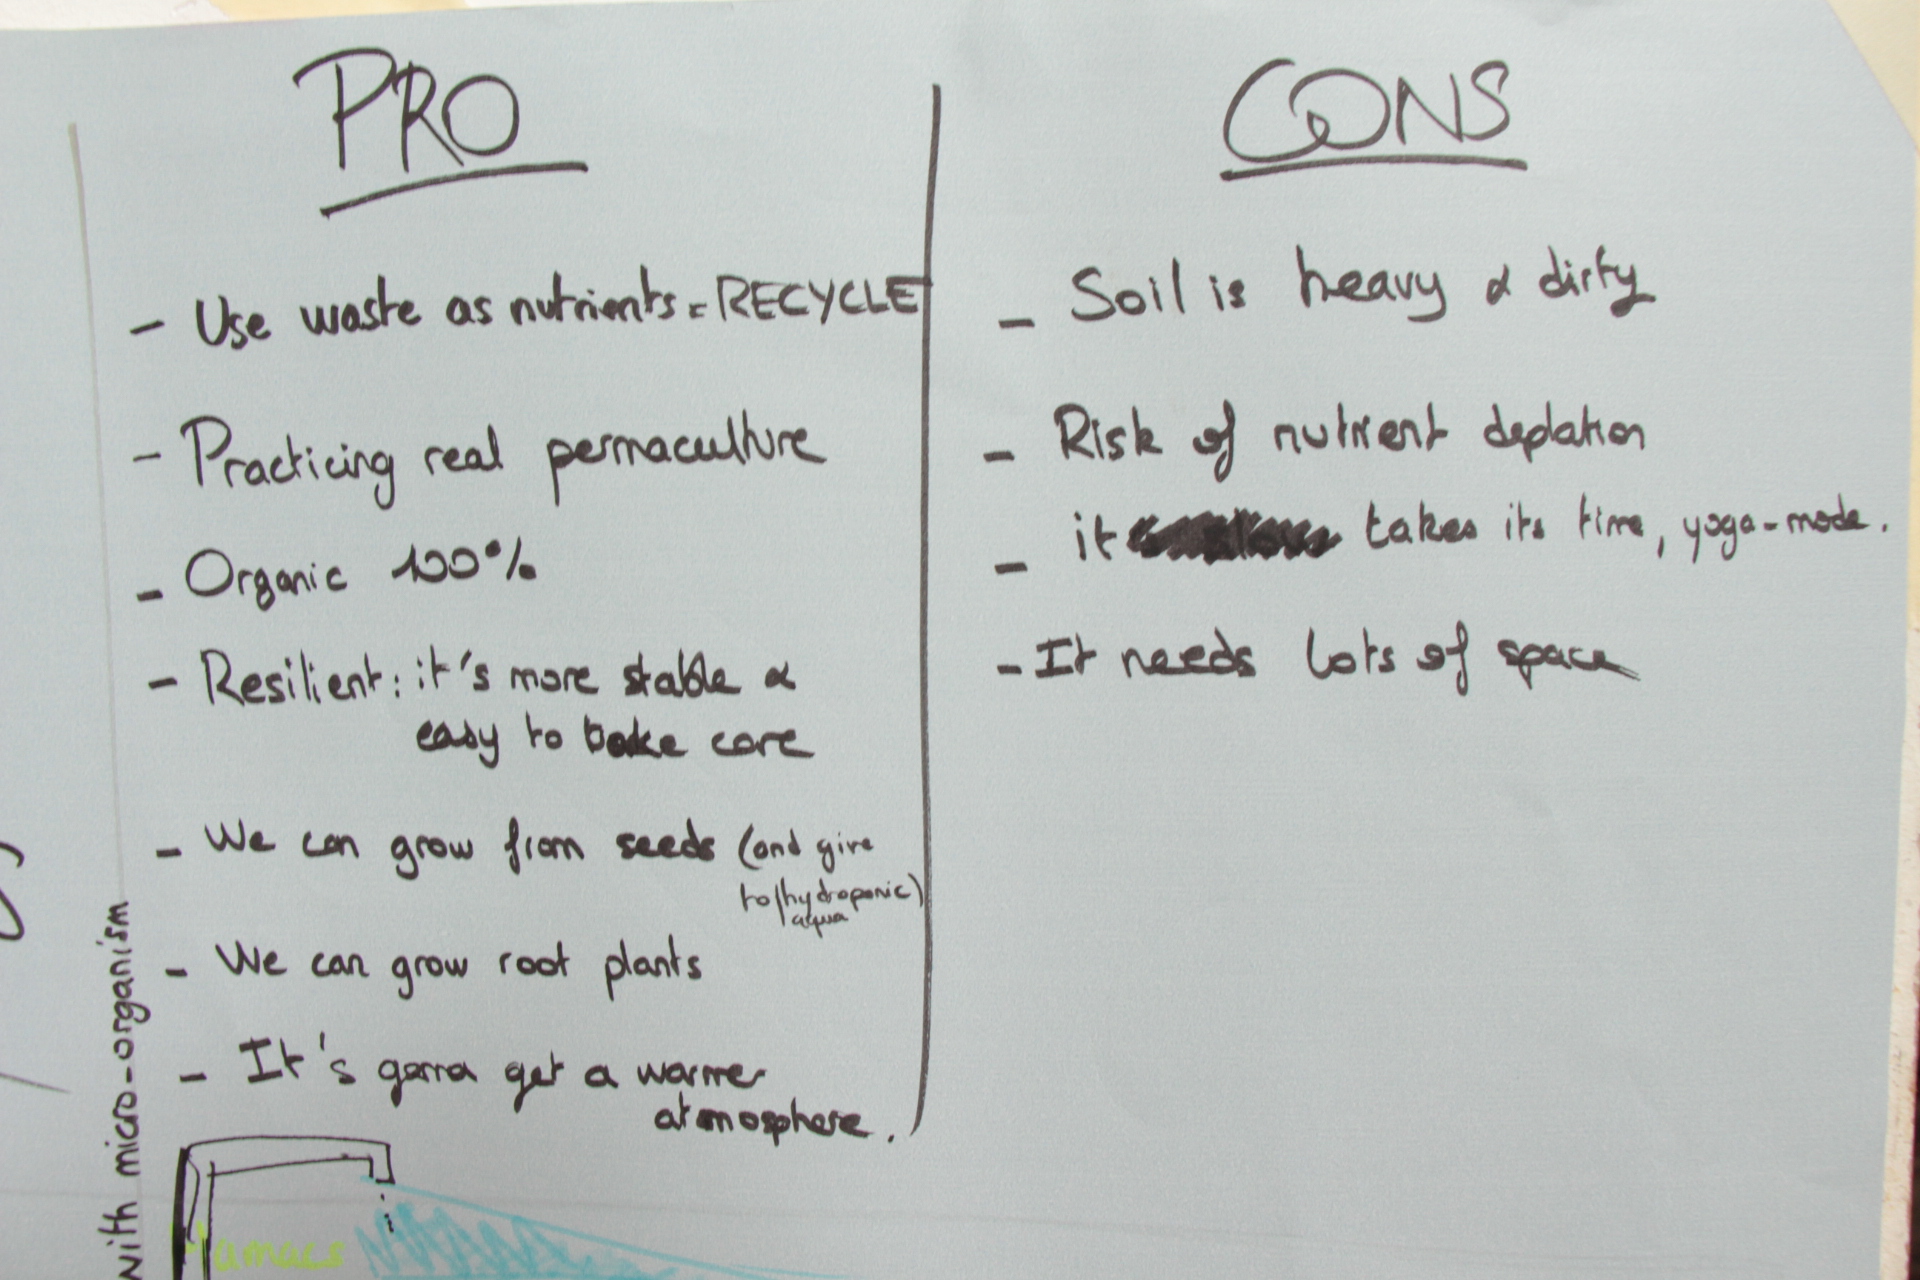 PRO
- Use waste as nutrients = RECYCLE
- Practicing real permaculture
- Organic 100%
- Resilient: it's more stable &
easy to take care
- We can grow from seeds (and give
to/hydroponic)
aqua
- We can grow root plants
- It's gonna get a warmer
atmosphere.
CONS
- Soil is heavy & dirty
- Risk of nutrient depletion
- it takes its time, yoga-mode.
- It needs lots of space
with micro-organism